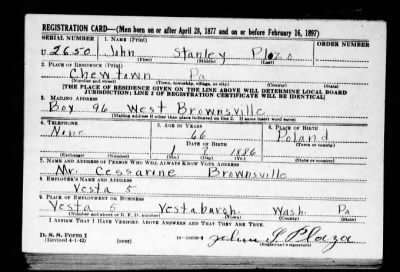 REGISTRATION CARD—(Men born on or after April 28, 1877 and on or before February 16, 1897)
SERIAL NUMBER 1. NAME (Print)
U 2650 John Stanley
(First) (Middle) (Last)
2. PLACE OF RESIDENCE (Print)
Chewtown Pa
(Number and street) (Town, township, village, or city) (County) (State)
[THE PLACE OF RESIDENCE GIVEN ON THE LINE ABOVE WILL DETERMINE LOCAL BOARD
JURISDICTION; LINE 2 OF REGISTRATION CERTIFICATE WILL BE IDENTICAL]
3. MAILING ADDRESS
Box 96 West Brownsville
[Mailing address if other than place indicated on line 2. If same insert word same]
4. TELEPHONE 5. AGE IN YEARS 6. PLACE OF BIRTH
None 66 Poland
DATE OF BIRTH (Town or county)
1 3 1886
(Exchange) (Number) (Mo.) (Day) (Yr.) (State or country)
7. NAME AND ADDRESS OF PERSON WHO WILL ALWAYS KNOW YOUR ADDRESS
Mr. Cessarine Brownsville
8. EMPLOYER'S NAME AND ADDRESS
Vesta 5
9. PLACE OF EMPLOYMENT OR BUSINESS
Vesta 5 Vestaburgh. Wash. Pa
(Number and street or R. F. D. number) (Town) (County) (State)
I AFFIRM THAT I HAVE VERIFIED ABOVE ANSWERS AND THAT THEY ARE TRUE.
D. S. S. Form 1
(Revised 4-1-42) (over) John S Ploza
(Registrant's signature)